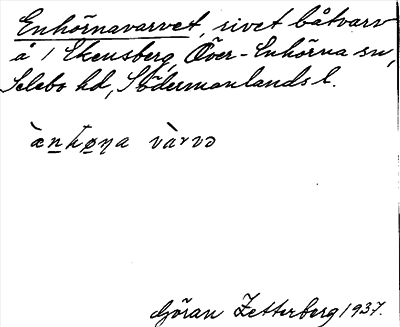 Enhörnavarvet, rivet båtvarv
å 1 Ekensberg, Över-Enhörna sn,
Selebo hd, Södermanlands l.
Göran Zetterberg 1937.